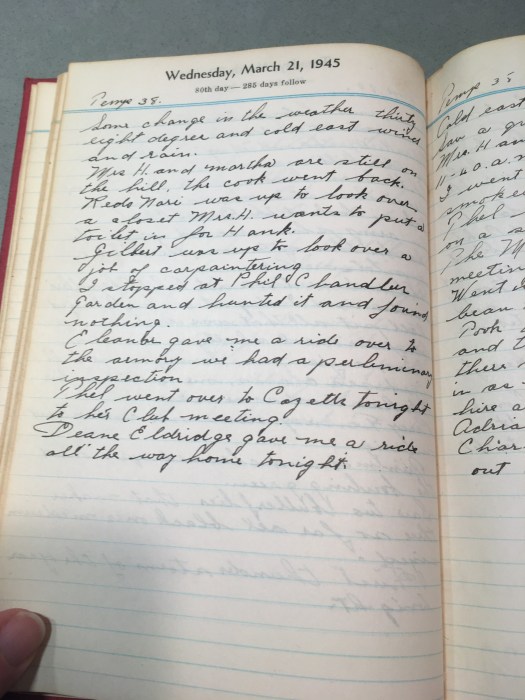 Wednesday, March 21, 1945
80th day — 285 days follow
Temp 38.
Some change in the weather thirty
eight degree and cold east wind
and rain.
Mrs H. and martha are still on
the hill. the cook went back.
Redo Nari was up to look over
a closet Mrs H. wants to put a
toilet in for Hank.
Gilbert was up to look over a
job of carpaintering
I stopped at Phil Chandler
Garden and hunted it and found
nothing.
Eleanor gave me a ride over to
the armory we had a perliminary
inspection
Phel went over to Cozette tonight
to her Club meeting.
Deane Eldridge gave me a ride
all the way home tonight.
Temp 35
Cold east
Saw a
Mrs. H
11-40 a.
I went
smoke
Phel
on a
The
meetin
Went
bean
Pooh
and
there
in as
hire a
Adria
Char
out